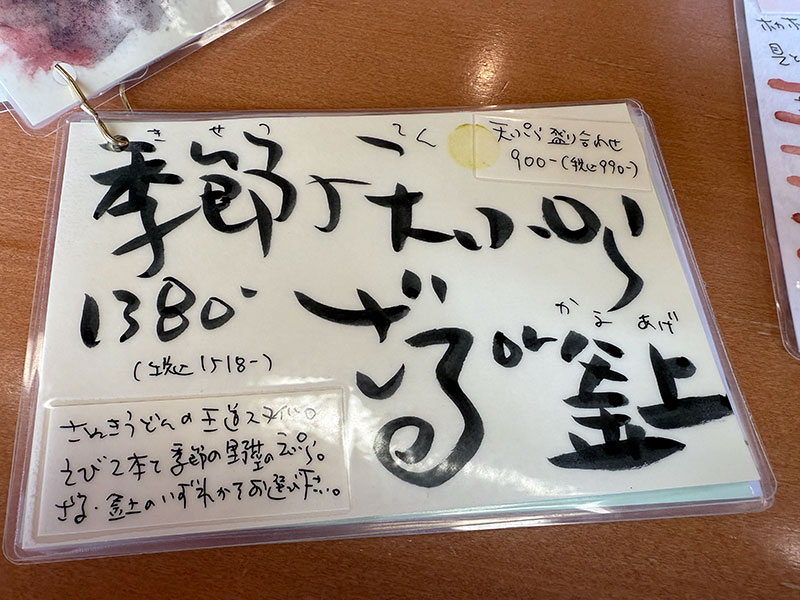 きせつ
季節の天ぷら
てん
天ぷら盛り合わせ
900-(税込990-)
ざるor釜上
かまあげ
1380-
(税込1518-)
さぬきうどんの王道スタイル。
えび2本と季節の野菜の天ぷら。
ざる・釜上のいずれかをお選び下さい。